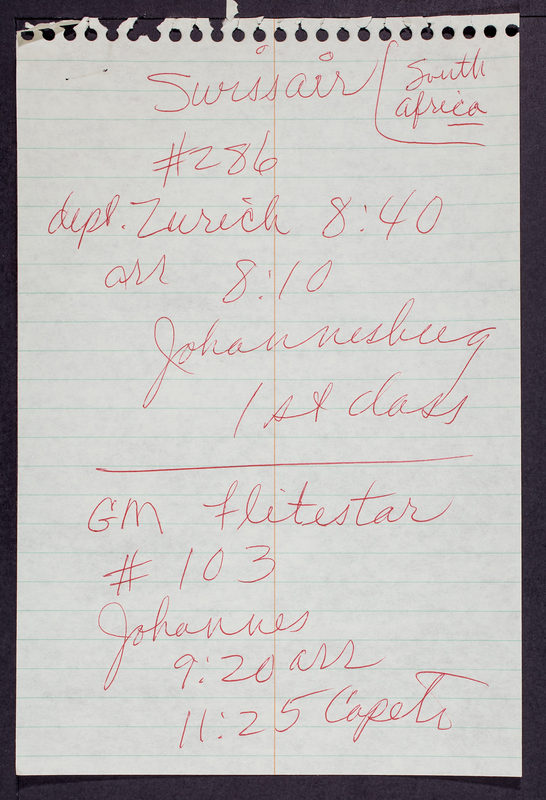 Swissair
South
africa
#286
dept. Zurich 8:40
arr 8:10
Johannesbueg
1st class
GM Flitestar
# 103
Johannes
9:20 arr
11:25 Capet